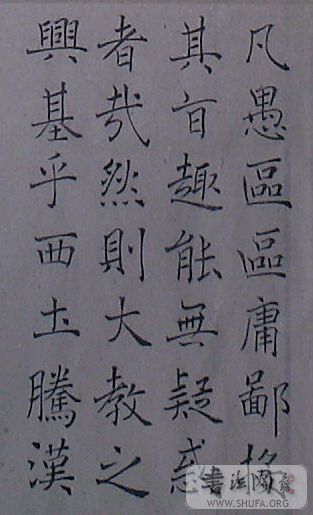 凡愚區區庸鄙投
其旨趣能無疑惑
者哉然則大教之
興基乎西土騰漢
書法网
WWW.SHUFA.ORG